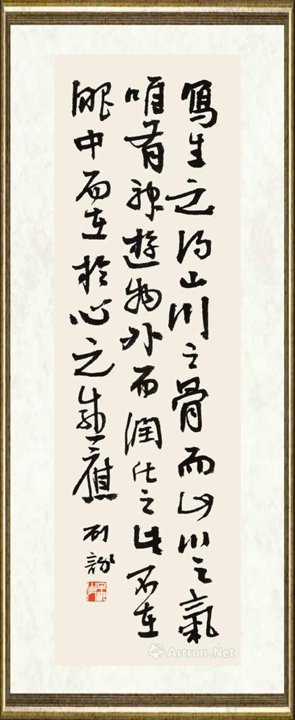 寫生之得山川之骨而山川之氣
唯有神遊物外而潤化之此不在
眼中而在於心之感應
Artron.Net